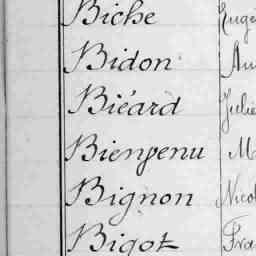 Biche Eugè
Bidon Au
Biéard Julie
Bienvenu M
Bignon Nicol
Bigot Fra